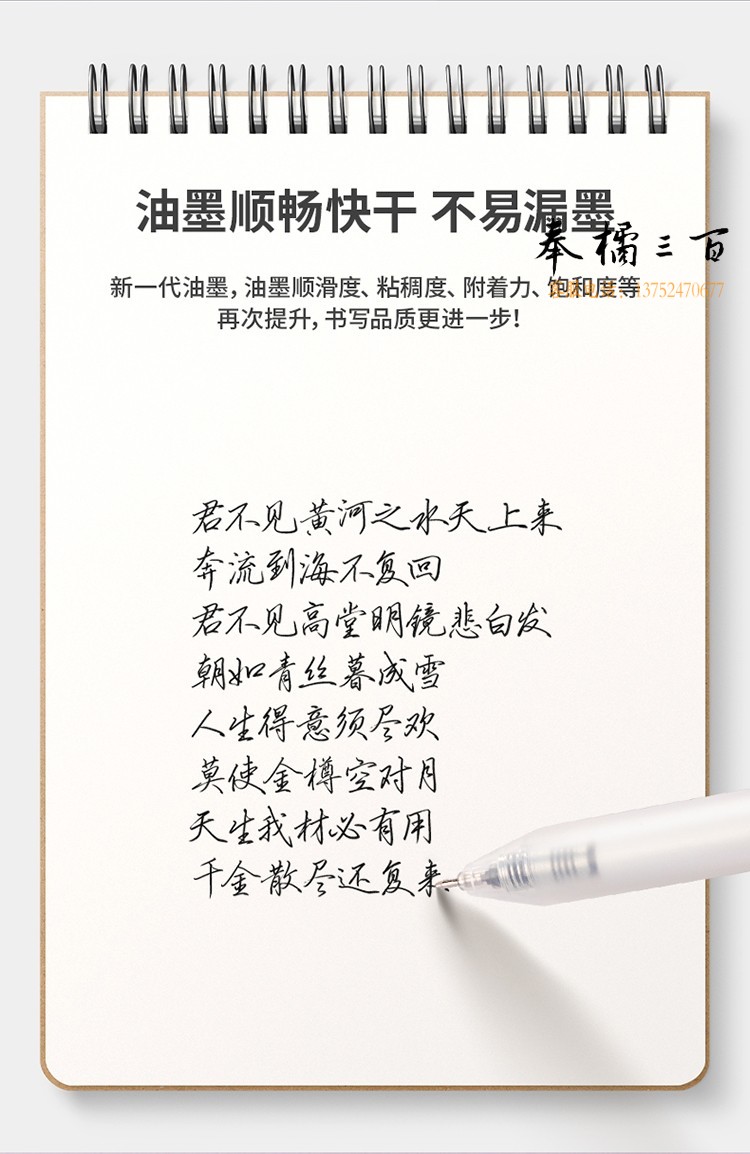 油墨顺畅快干 不易漏墨
奉橘三百
新一代油墨，油墨顺滑度、粘稠度、附着力、饱和度等
13752470677
再次提升，书写品质更进一步！
君不见黄河之水天上来
奔流到海不复回
君不见高堂明镜悲白发
朝如青丝暮成雪
人生得意须尽欢
莫使金樽空对月
天生我材必有用
千金散尽还复来